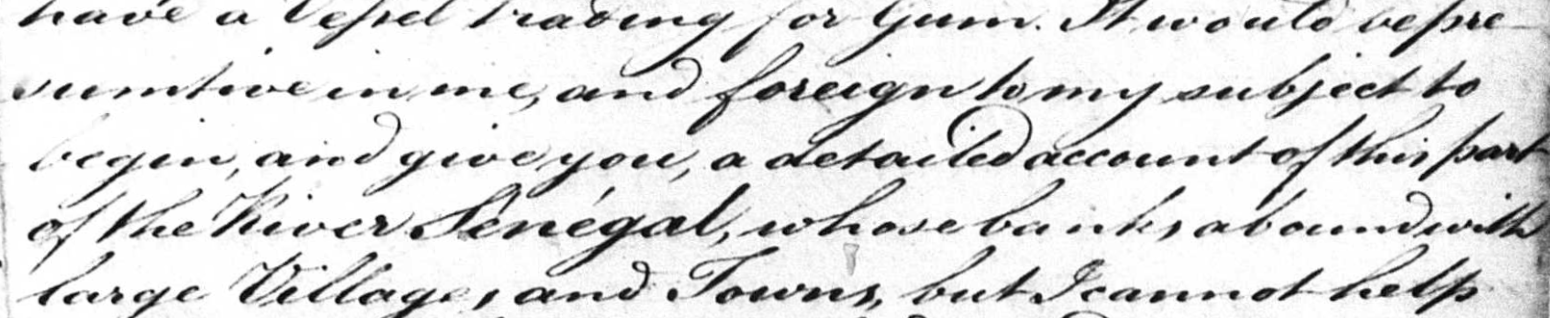 have a Vessel trading for Gum. It would be pre-
sumtive in me, and foreign to my subject to
begin, and give you, a detailed account of this part
of the River Sénégal, whose banks abound with
large Villages and Towns, but I cannot help